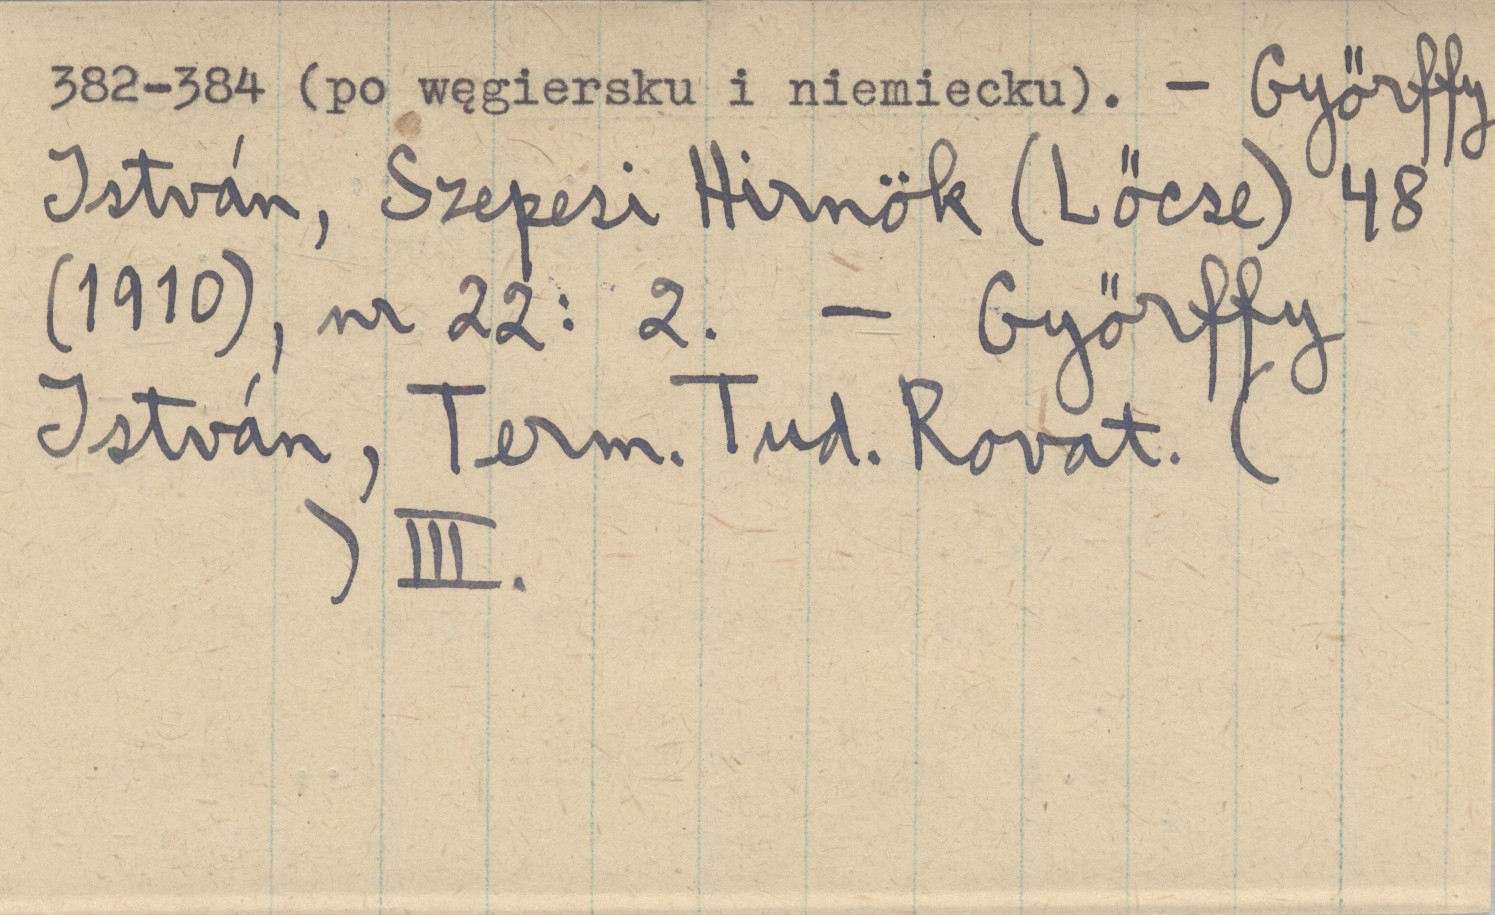 382-384 (po węgiersku i niemiecku). — Győrffy
István, Szepesi Hirnök (Lőcse) 48
(1910), nr 22: 2. — Győrffy
István, Term. Tud. Rovat. (
) III.